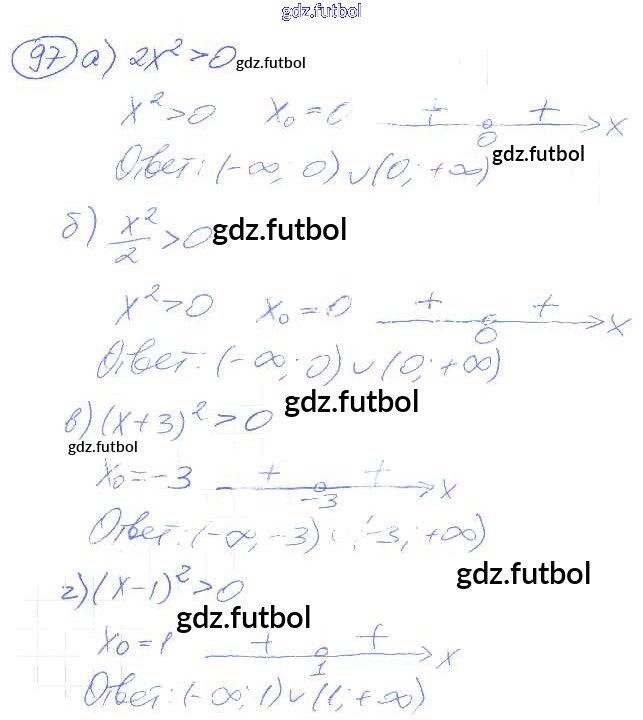 gdz.futbol
97 а) 2x² > 0 gdz.futbol
x² > 0 x₀ = 0 + + 0 x
Ответ: (-∞; 0) ∪ (0; +∞) gdz.futbol
б) x²/2 > 0 gdz.futbol
x² > 0 x₀ = 0 + + 0 x
Ответ: (-∞; 0) ∪ (0; +∞)
в) (x+3)² > 0 gdz.futbol
gdz.futbol
x₀ = -3 + + -3 x
Ответ: (-∞; -3) ∪ (-3; +∞)
gdz.futbol
г) (x-1)² > 0
gdz.futbol
x₀ = 1 + + 1 x
Ответ: (-∞; 1) ∪ (1; +∞)